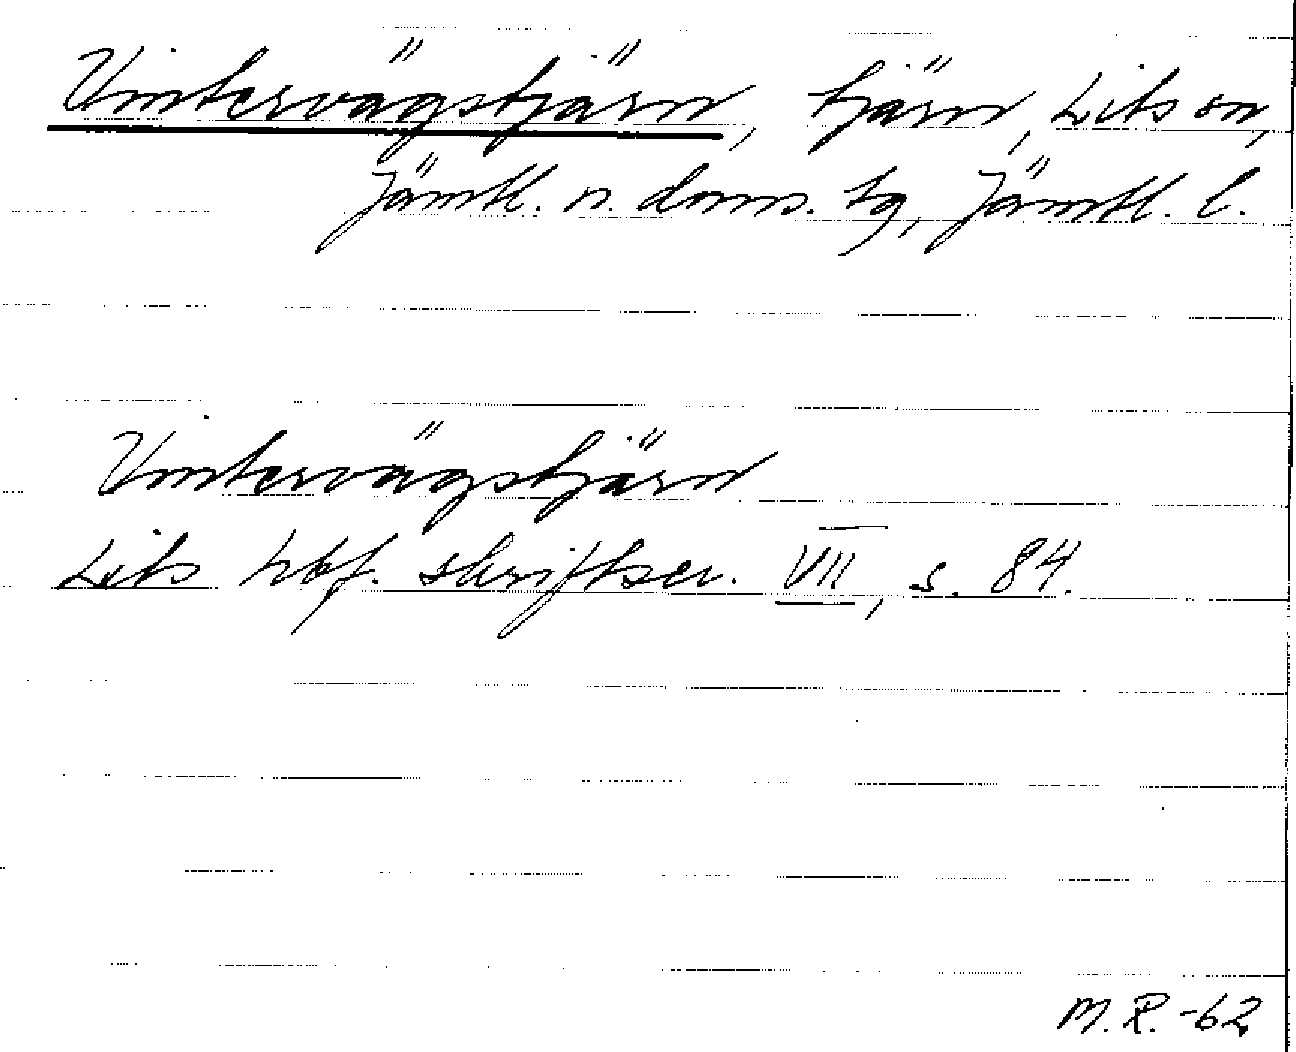 Vintervägstjärn, tjärn, Lits sn,
Jämtl. n. doms. tg, Jämtl. l.
Vintervägstjärn
Lits hbf. skriftser. VII, s. 84.
M.R. -62